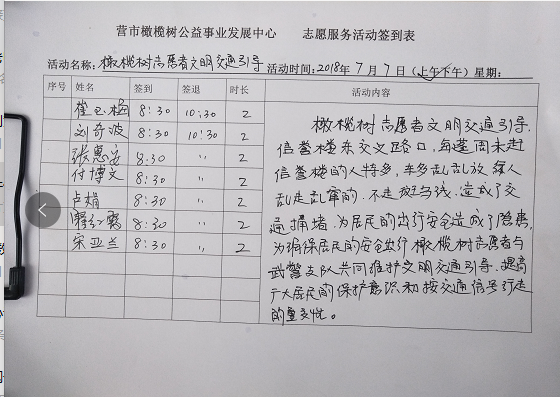 营市橄榄树公益事业发展中心 志愿服务活动签到表
活动名称: 橄榄树志愿者文明交通引导 活动时间: 2018年 7月 7日 (上午下午) 星期:
序号 姓名 签到 签退 时长 活动内容
8:30 10:30 2
刘奇波 8:30 10:30 2
张惠安 8:30 〃 2
付博文 8:30 〃 2
卢娟 8:30 〃 2
8:30 〃 2
宋亚兰 8:30 〃 2
橄榄树志愿者文明交通引导.
信誉楼东交叉路口,每逢周末赶
信誉楼的人特多,车多乱乱放 行人
乱走乱窜的.不走斑马线.造成了交
通拥堵.为居民的出行安全造成了隐患,
为确保居民的安全出行橄榄树志愿者与
武警支队共同维护文明交通引导.提高
广大居民的保护意识和按交通信号行走
的重要性。